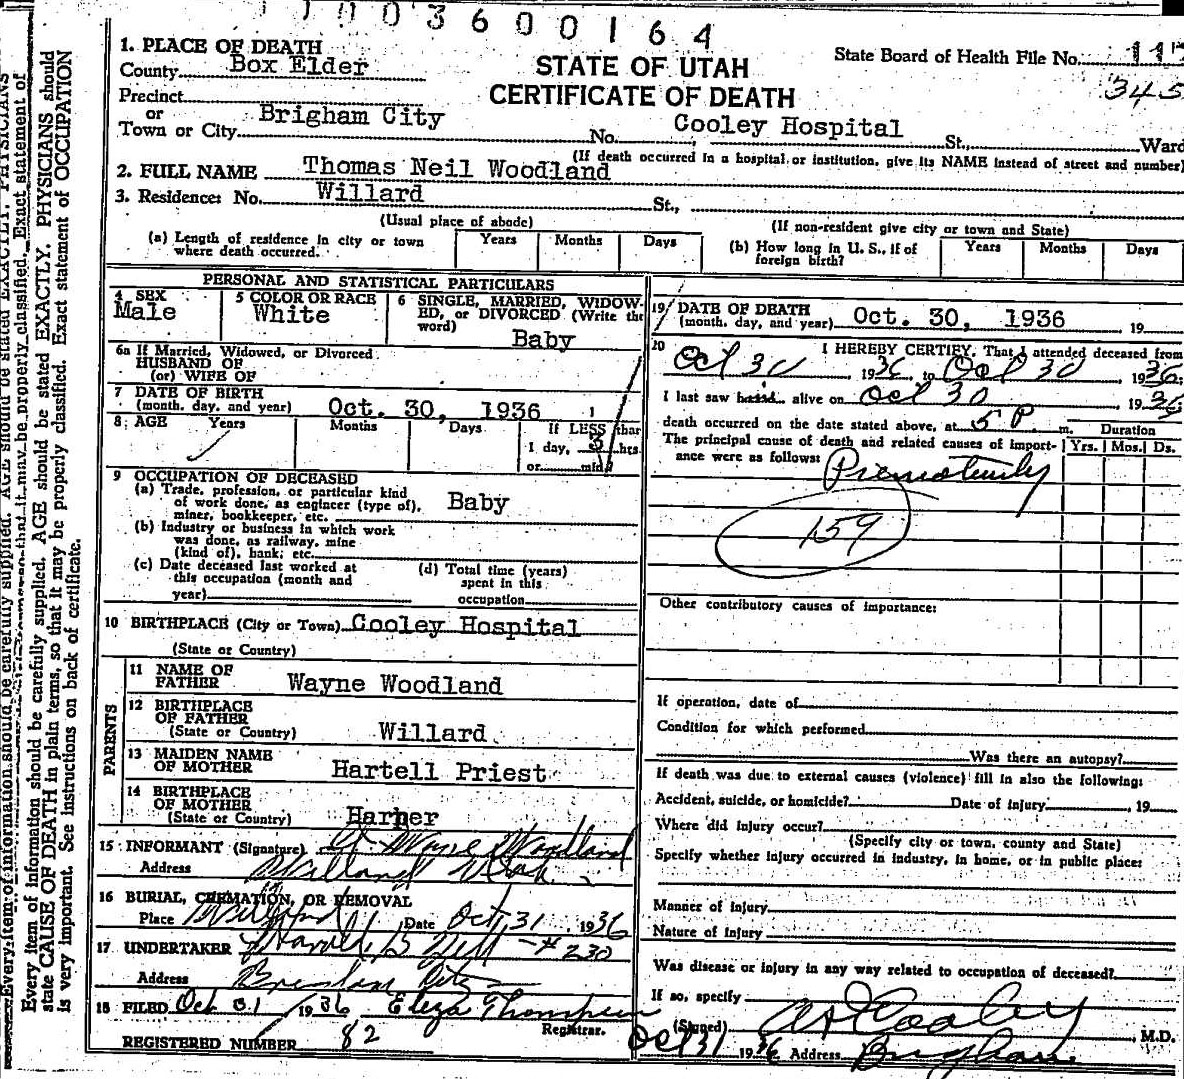 1003600164
1. PLACE OF DEATH
County Box Elder
STATE OF UTAH
CERTIFICATE OF DEATH
State Board of Health File No. 117
345
Precinct
or
Town or City Brigham City No. Cooley Hospital St., Ward
(If death occurred in a hospital or institution, give its NAME instead of street and number)
2. FULL NAME Thomas Neil Woodland
3. Residence: No. Willard St.,
(Usual place of abode) (If non-resident give city or town and State)
(a) Length of residence in city or town where death occurred. Years Months Days
(b) How long in U. S., if of foreign birth? Years Months Days
PERSONAL AND STATISTICAL PARTICULARS
4 SEX Male
5 COLOR OR RACE White
6 SINGLE, MARRIED, WIDOWED, or DIVORCED (Write the word) Baby
6a If Married, Widowed, or Divorced
HUSBAND OF
(or) WIFE OF
7 DATE OF BIRTH
(month, day, and year) Oct. 30, 1936
8 AGE Years Months Days If LESS than
1 day, 3 hrs.
or min.
9 OCCUPATION OF DECEASED
(a) Trade, profession, or particular kind
of work done, as engineer (type of),
miner, bookkeeper, etc. Baby
(b) Industry or business in which work
was done, as railway, mine
(kind of), bank, etc.
(c) Date deceased last worked at
this occupation (month and
year)
(d) Total time (years)
spent in this
occupation
10 BIRTHPLACE (City or Town) Cooley Hospital
(State or Country)
PARENTS
11 NAME OF
FATHER Wayne Woodland
12 BIRTHPLACE
OF FATHER
(State or Country) Willard
13 MAIDEN NAME
OF MOTHER Hartell Priest
14 BIRTHPLACE
OF MOTHER
(State or Country) Harper
15 INFORMANT (Signature) Wayne Woodland
Address Willard Utah
16 BURIAL, CREMATION, OR REMOVAL
Place Willard Date Oct 31 1936
17 UNDERTAKER Harold B Felt - # 230
Address Brigham City
18 FILED Oct 31 1936 Eliza Thompson
Registrar.
REGISTERED NUMBER 82
19 DATE OF DEATH
(month, day, and year) Oct. 30, 1936 19
20 I HEREBY CERTIFY, That I attended deceased from
Oct 30, 1936, to Oct 30, 1936;
I last saw h alive on Oct 30, 1936
death occurred on the date stated above, at 5 P m.
Duration
The principal cause of death and related causes of importance were as follows: Yrs. Mos. Ds.
Prematurity
159
Other contributory causes of importance:
If operation, date of
Condition for which performed
Was there an autopsy?
If death was due to external causes (violence) fill in also the following:
Accident, suicide, or homicide? Date of injury , 19
Where did injury occur?
(Specify city or town, county and State)
Specify whether injury occurred in industry, in home, or in public place:
Manner of injury
Nature of injury
Was disease or injury in any way related to occupation of deceased?
If so, specify
(Signed) Cooley , M.D.
Oct 31 1936 Address Brigham
Every item of information should be carefully supplied. AGE should be stated EXACTLY. PHYSICIANS should
state CAUSE OF DEATH in plain terms, so that it may be properly classified. Exact statement of OCCUPATION
is very important. See instructions on back of certificate.